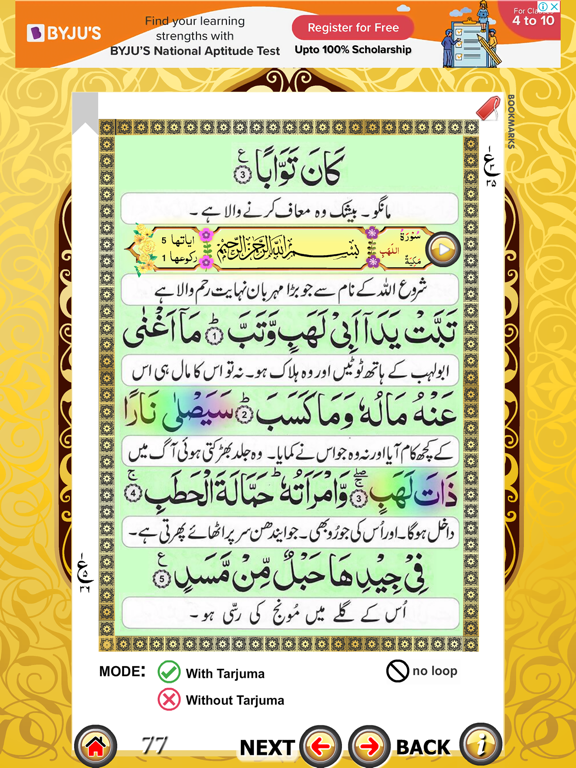 BYJU'S
Find your learning
strengths with
BYJU'S National Aptitude Test
Register for Free
Upto 100% Scholarship
For Cla
4 to 10
BOOKMARKS
كَانَ تَوَّابًا ۳
مانگو۔ بیشک وہ معاف کرنے والا ہے۔
سُوْرَةُ اللَّهَب مَكِّيَّة
بِسْمِ اللهِ الرَّحْمٰنِ الرَّحِيْمِ
اياتها 5
ركوعها 1
شروع اللہ کے نام سے جو بڑا مہربان نہایت رحم والا ہے
تَبَّتْ يَدَآ اَبِىْ لَهَبٍ وَّتَبَّ ؕ 1 مَاۤ اَغْنٰى
ابولہب کے ہاتھ ٹوٹیں اور وہ ہلاک ہو۔ نہ تو اس کا مال ہی اس
عَنْهُ مَالُهٗ وَمَا كَسَبَ ؕ 2 سَيَصْلٰى نَارًا
کے کچھ کام آیا اور نہ وہ جو اس نے کمایا۔ وہ جلد بھڑکتی ہوئی آگ میں
ذَاتَ لَهَبٍ 3 وَّامْرَاَتُهٗ ؕ حَمَّالَةَ الْحَطَبِ ۚ 4
داخل ہوگا۔ اور اُس کی جورُو بھی۔ جو ایندھن سر پر اٹھائے پھرتی ہے۔
فِىْ جِيْدِهَا حَبْلٌ مِّنْ مَّسَدٍ 5
اُس کے گلے میں مُونج کی رسّی ہو۔
MODE:
With Tarjuma
no loop
Without Tarjuma
77
NEXT
BACK
i